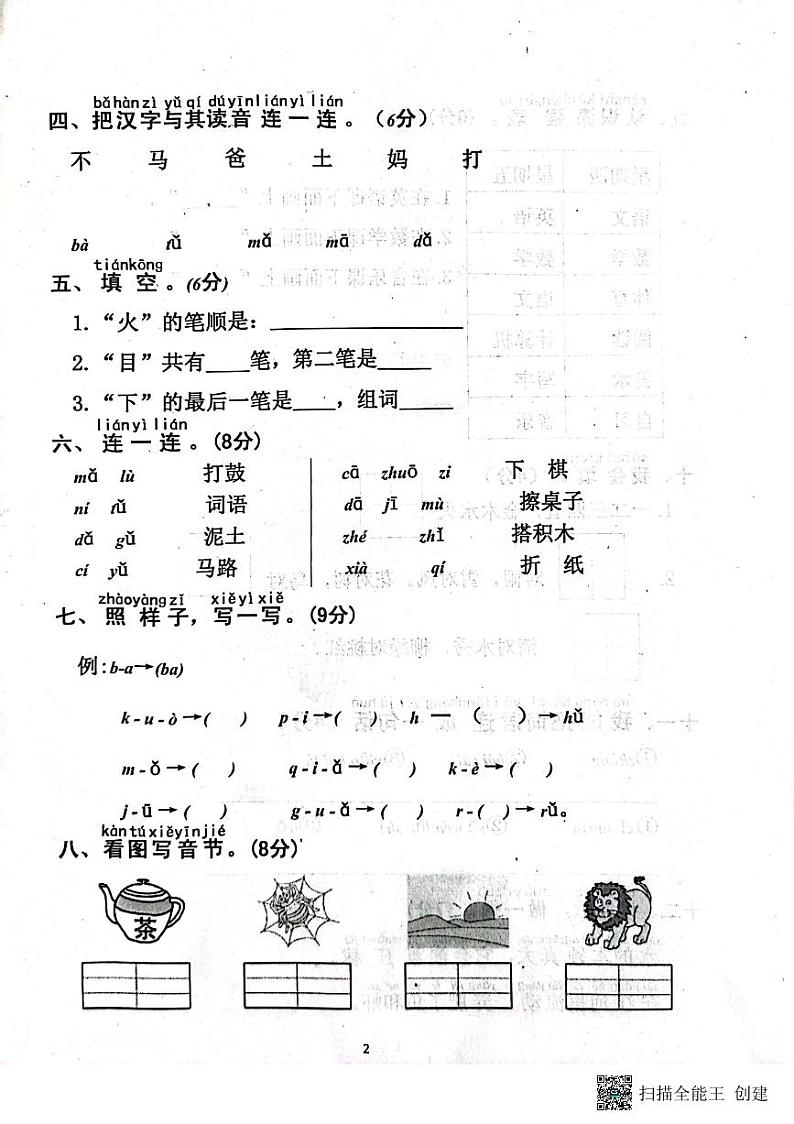 bǎhànzì yǔ qí dúyīnliányìlián
四、把汉字与其读音 连 一 连 。（6分）
不 马 爸 土 妈 打
bà tǔ mǎ mā dǎ
tiánkōng
五、填 空 。(6分)
1.“火”的笔顺是：
2.“目”共有____笔，第二笔是_____
3.“下”的最后一笔是____，组词_____
liányìlián
六、连 一 连 。(8分)
mǎ lù 打鼓 cā zhuō zi 下 棋
ní tǔ 词语 dā jī mù 擦桌子
dǎ gǔ 泥土 zhé zhǐ 搭积木
cí yǔ 马路 xià qí 折 纸
zhàoyàngzǐ xiěyìxiě
七、照 样 子，写一写。(9分)
例:b-a→(ba)
k-u-ò→( ) p-i→( ) h —（ ）→hǔ
m-ǒ→( ) q-i-ǎ→( ) k-è→( )
j-ū→( ) g-u-ǎ→( ) r-( )→rǔ。
kàntúxiěyīnjié
八、看图写音节。(8分)
茶
2
扫描全能王 创建